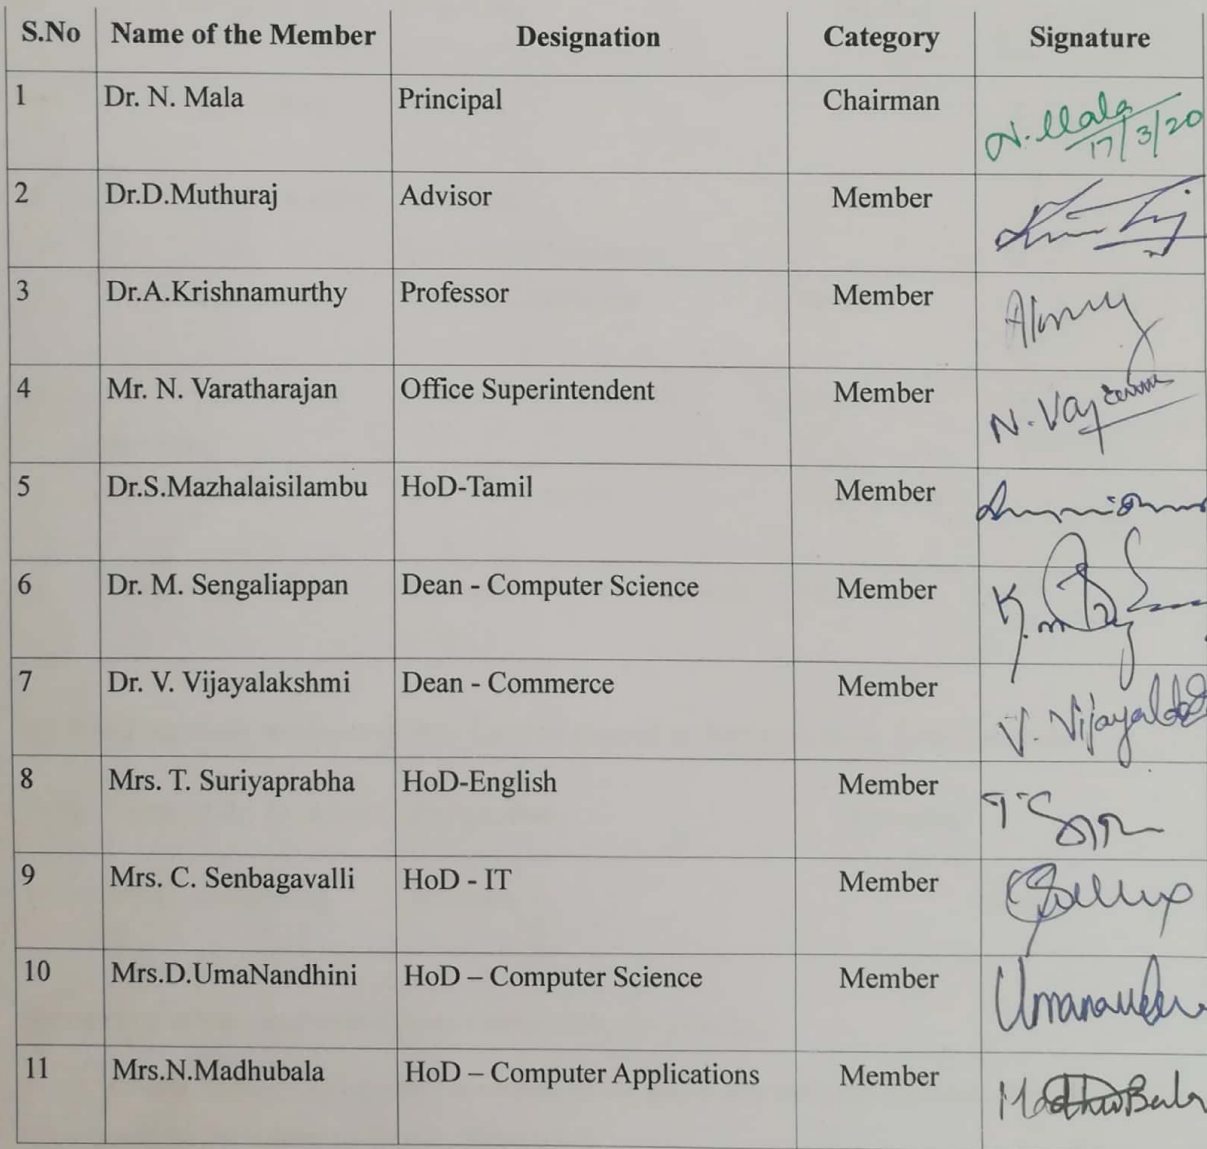 S.No Name of the Member Designation Category Signature
1 Dr. N. Mala Principal Chairman N. Mala
17/3/20
2 Dr.D.Muthuraj Advisor Member
3 Dr.A.Krishnamurthy Professor Member
4 Mr. N. Varatharajan Office Superintendent Member N.
5 Dr.S.Mazhalaisilambu HoD-Tamil Member
6 Dr. M. Sengaliappan Dean - Computer Science Member
7 Dr. V. Vijayalakshmi Dean - Commerce Member V.
8 Mrs. T. Suriyaprabha HoD-English Member
9 Mrs. C. Senbagavalli HoD - IT Member
10 Mrs.D.UmaNandhini HoD – Computer Science Member
11 Mrs.N.Madhubala HoD – Computer Applications Member